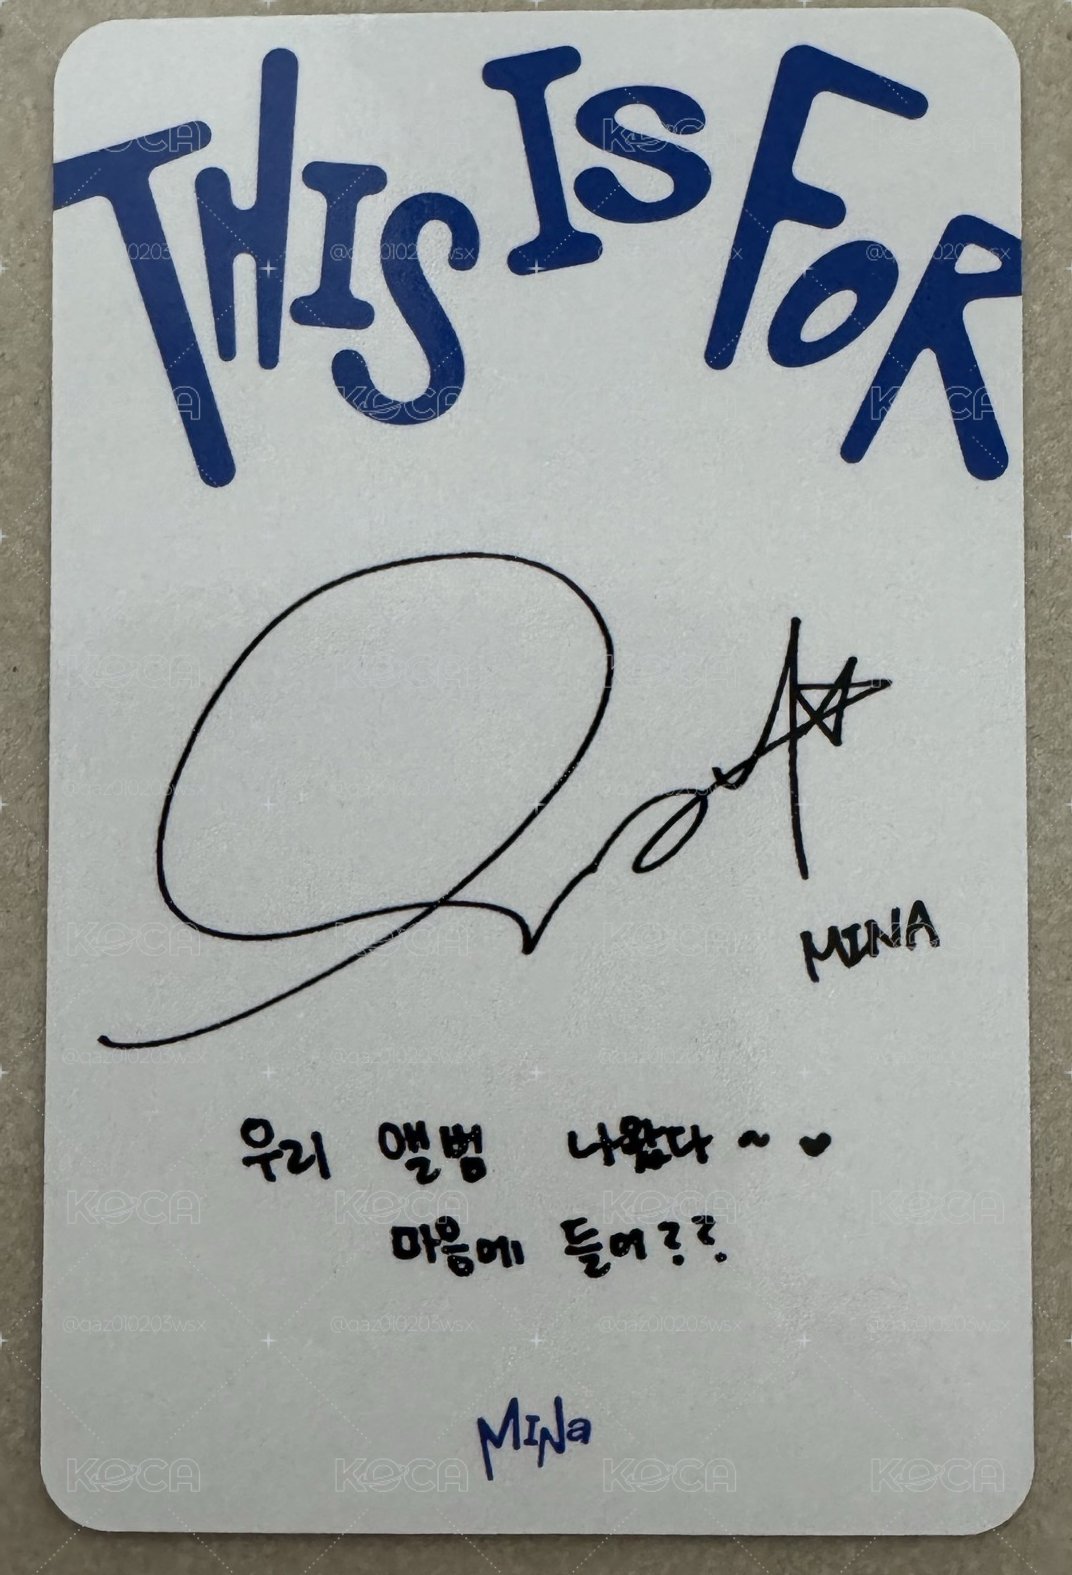 THIS IS FOR
MINA
우리 앨범 나왔다~♥
마음에 들어??
MINa
KOCA
@qaz010203wsx